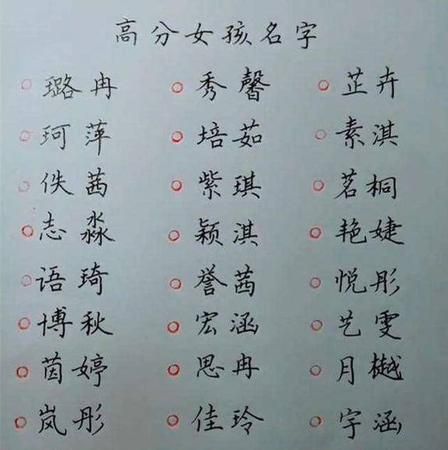 高分女孩名字
璐冉 秀馨 芷卉
珂萍 培茹 素淇
佚茜 紫琪 茗桐
志淼 颖淇 艳婕
语琦 誉茜 悦彤
博秋 宏涵 艺雯
茵婷 思冉 月樾
岚彤 佳玲 宇涵